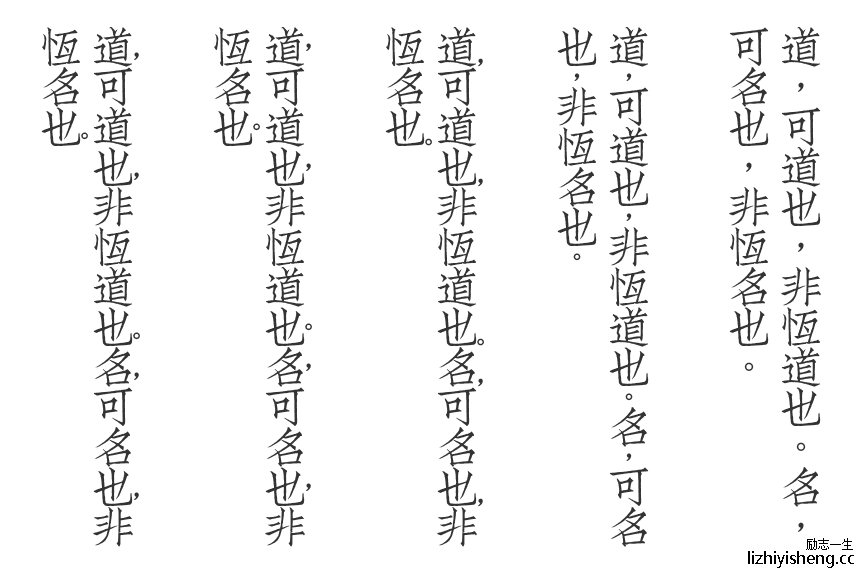 道，可道也，非恆道也。名，
可名也，非恆名也。
道，可道也，非恆道也。名，可名
也，非恆名也。
道，可道也，非恆道也。名，可名也，非
恆名也。
道，可道也，非恆道也。名，可名也，非
恆名也。
道，可道也，非恆道也。名，可名也，非
恆名也。
励志一生
lizhiyisheng.cc